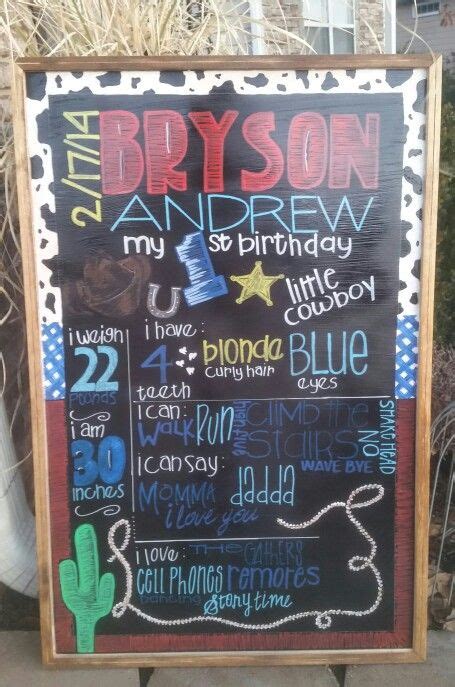 2/17/14
BRYSON
ANDREW
my 1st birthday
little
cowboy
i weigh
22
pounds
i am
30
inches
i have:
4
teeth
blonde
curly hair
BLUE
eyes
i can:
WALK RUN high five CLIMB THE
STAIRS
WAVE BYE
SHAKE HEAD
NO
i can say:
MOMMA dadda
i love you
i love: THE GAITHERS
CELL PHONES remotes
DANCING Story time